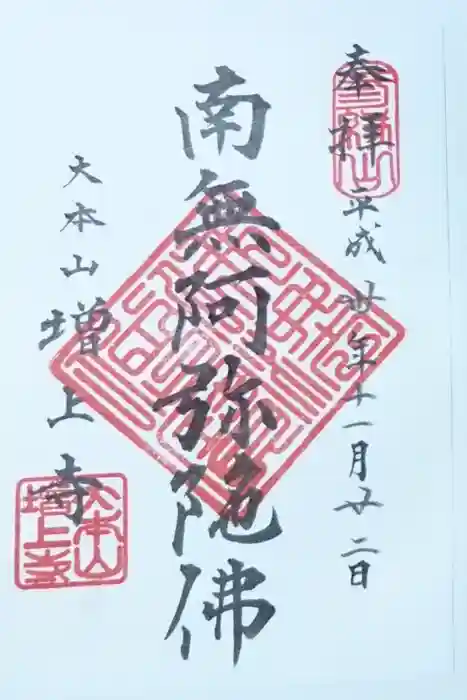 奉拝 平成廿年十一月廿二日
南無阿弥陀佛
大本山増上寺
大本山
増上寺